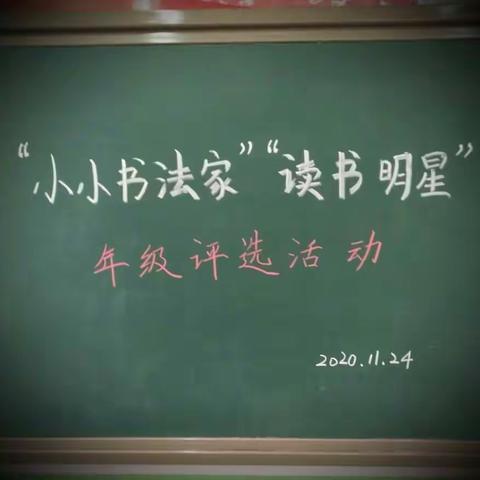 “小小书法家”“读书明星”
年级评选活动
2020.11.24